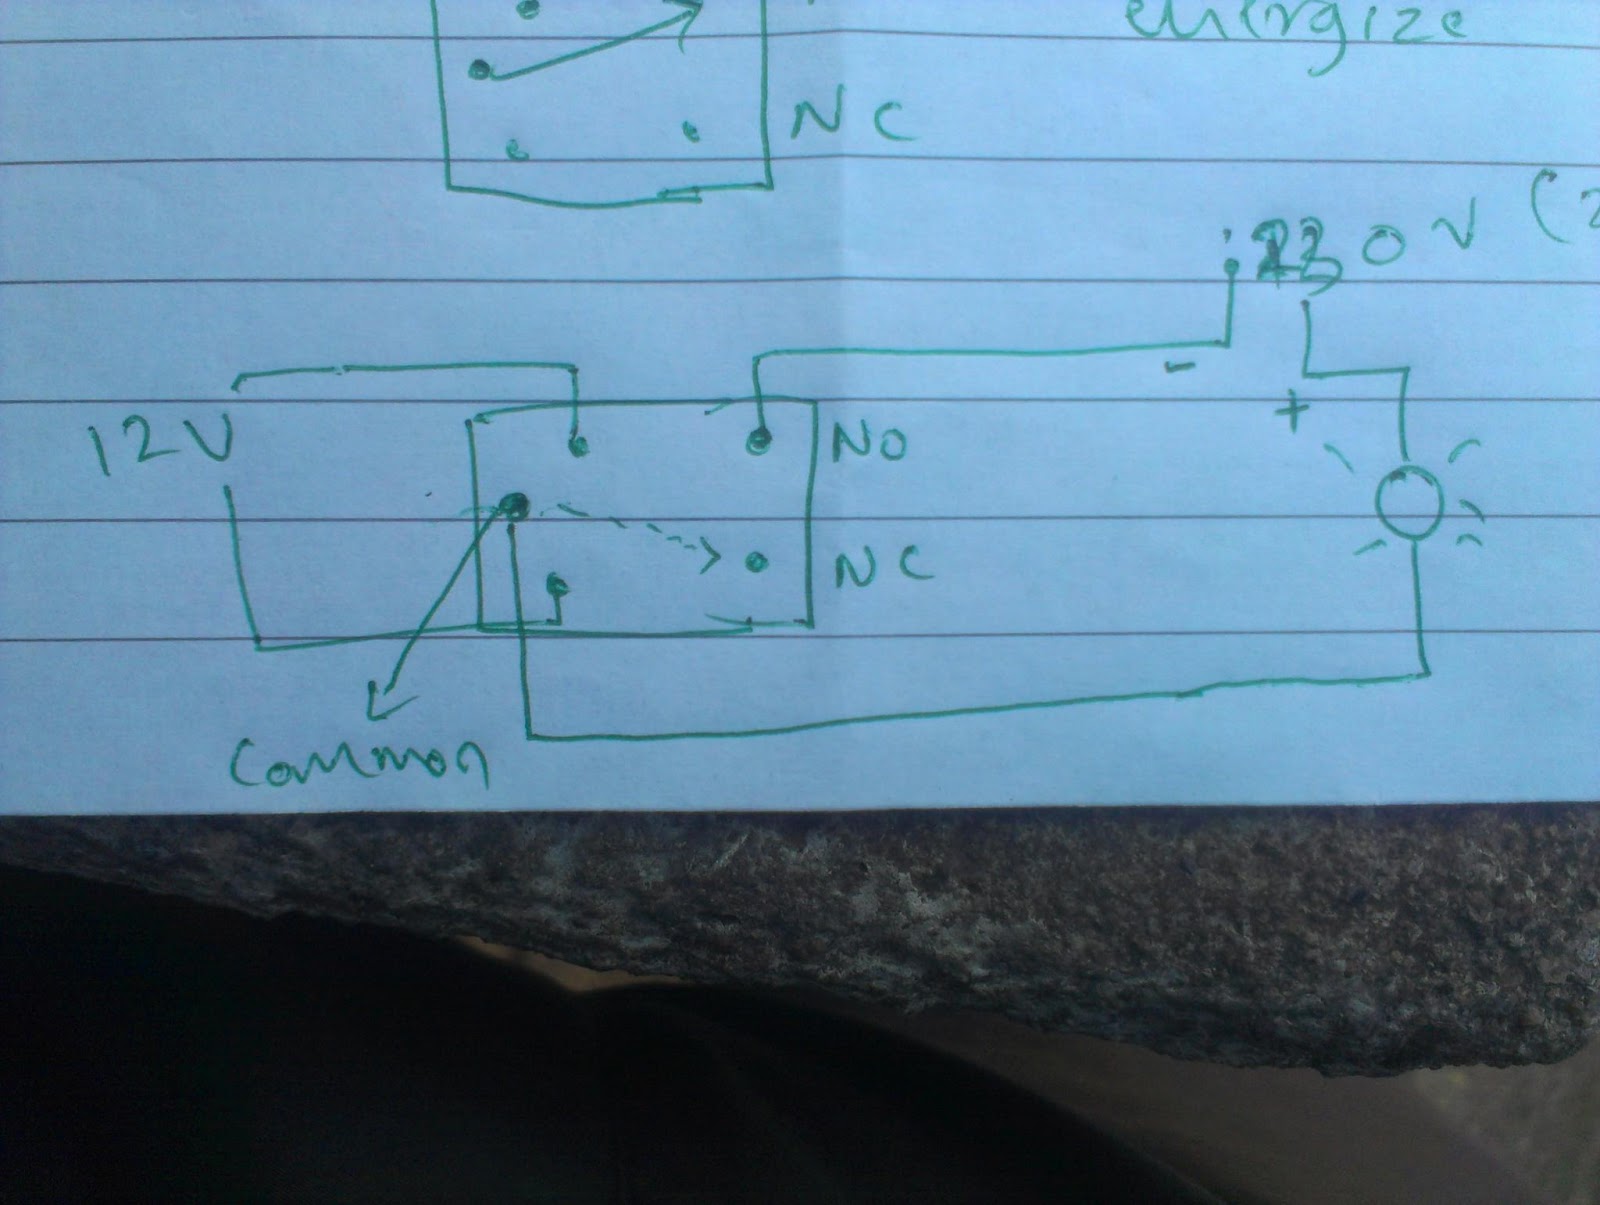 energize
NC
230V (2
-
+
12V
NO
NC
Common